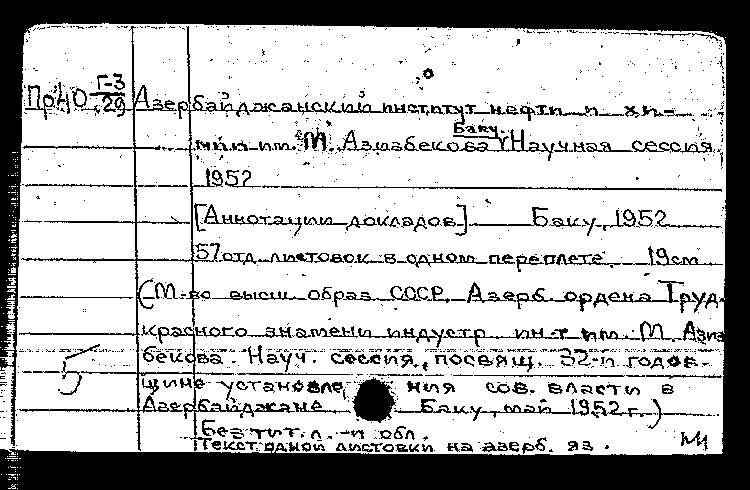 ПрНО Г-3/29 Азербайджанский институт нефти и хи-
мии им. М. Азизбекова. Баку. Научная сессия.
1952
[Аннотации докладов]. Баку, 1952
57 отд. листовок в одном переплете. 19 см
(М-во высш. образ. СССР. Азерб. ордена Труд.
красного знамени индустр. ин-т им. М. Азиз
бекова. Науч. сессия, посвящ. 32-й годов-
5 щине установления сов. власти в
Азербайджане Баку, май 1952 г.)
Без тит. л. и обл.
Текст одной листовки на азерб. яз.